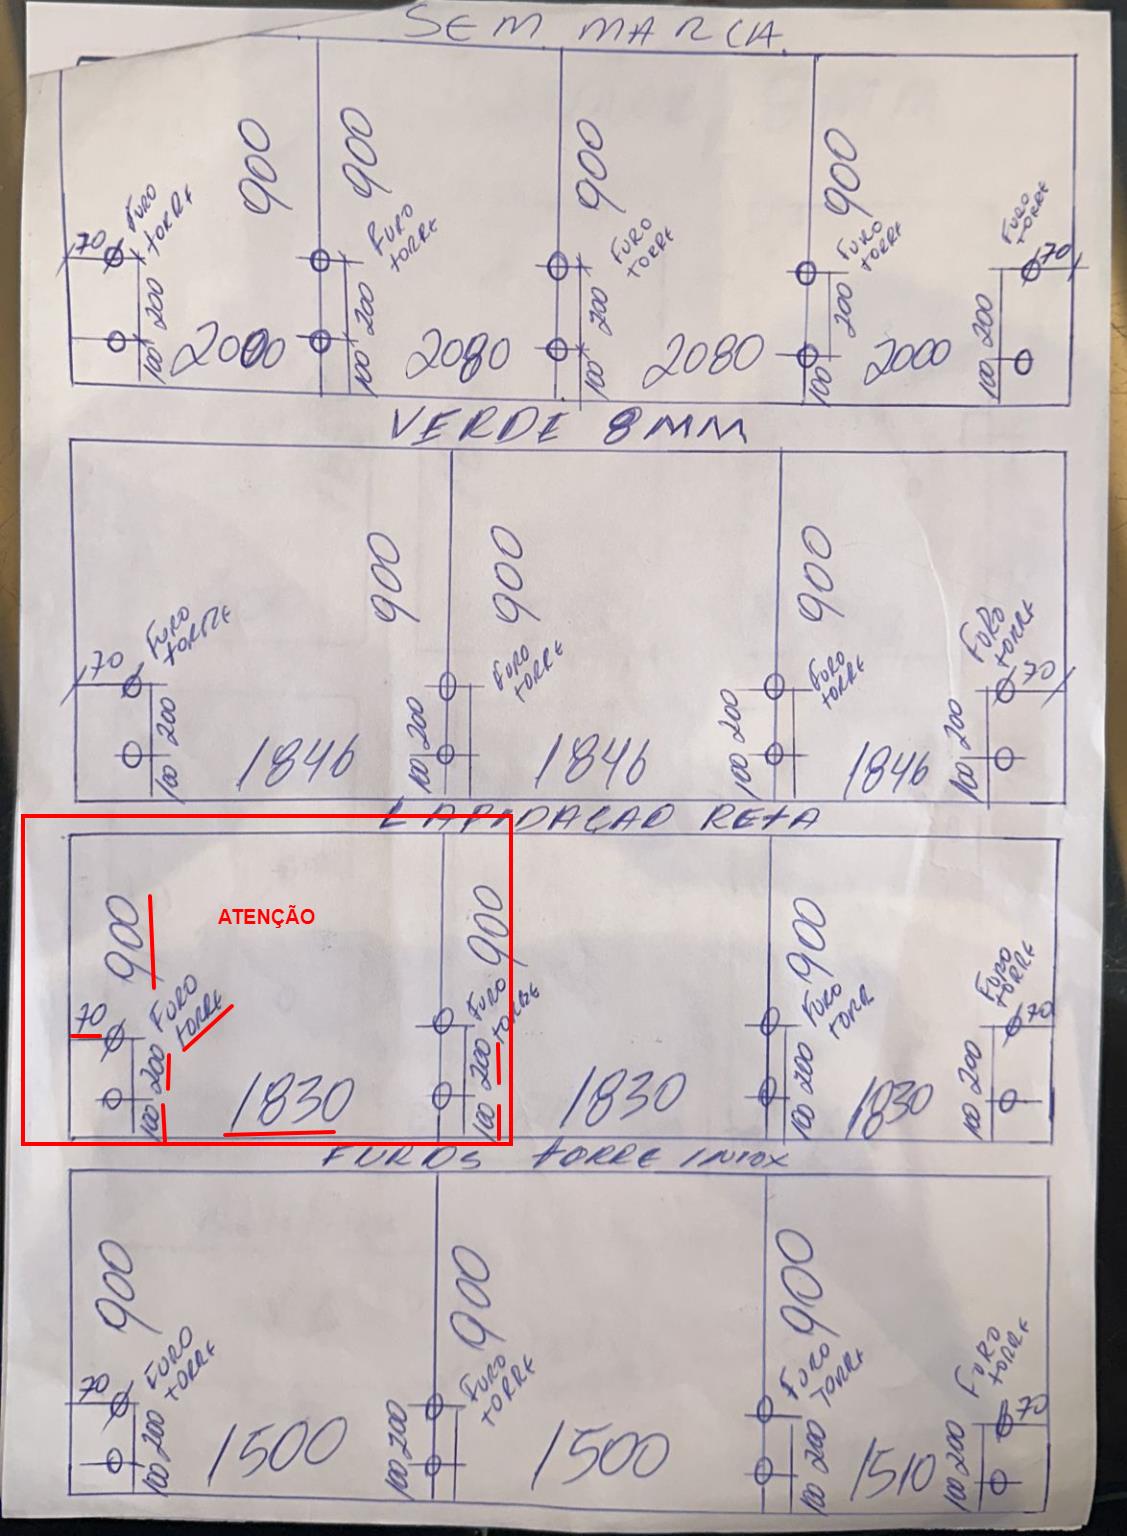 SEM MARCA
900 900 900 900
70 FURO TORRE FURO TORRE FURO TORRE FURO TORRE FURO TORRE 70
200 200 200 200 200
100 2000 100 2080 100 2080 100 2000 100
VERDE 8MM
900 900 900
70 FURO TORRE FURO TORRE FURO TORRE FURO TORRE 70
200 200 200 200
100 1846 100 1846 100 1846 100
LAPIDAÇAO RETA
900 ATENÇÃO 900 900
70 FURO TORRE FURO TORRE FURO TORR FURO TORRE 70
200 200 200 200
100 1830 100 1830 100 1830 100
FUROS TORRE INOX
900 900 900
70 FURO TORRE FURO TORRE FURO TORRE FURO TORRE 70
200 200 200 200
100 1500 100 1500 100 1510 100